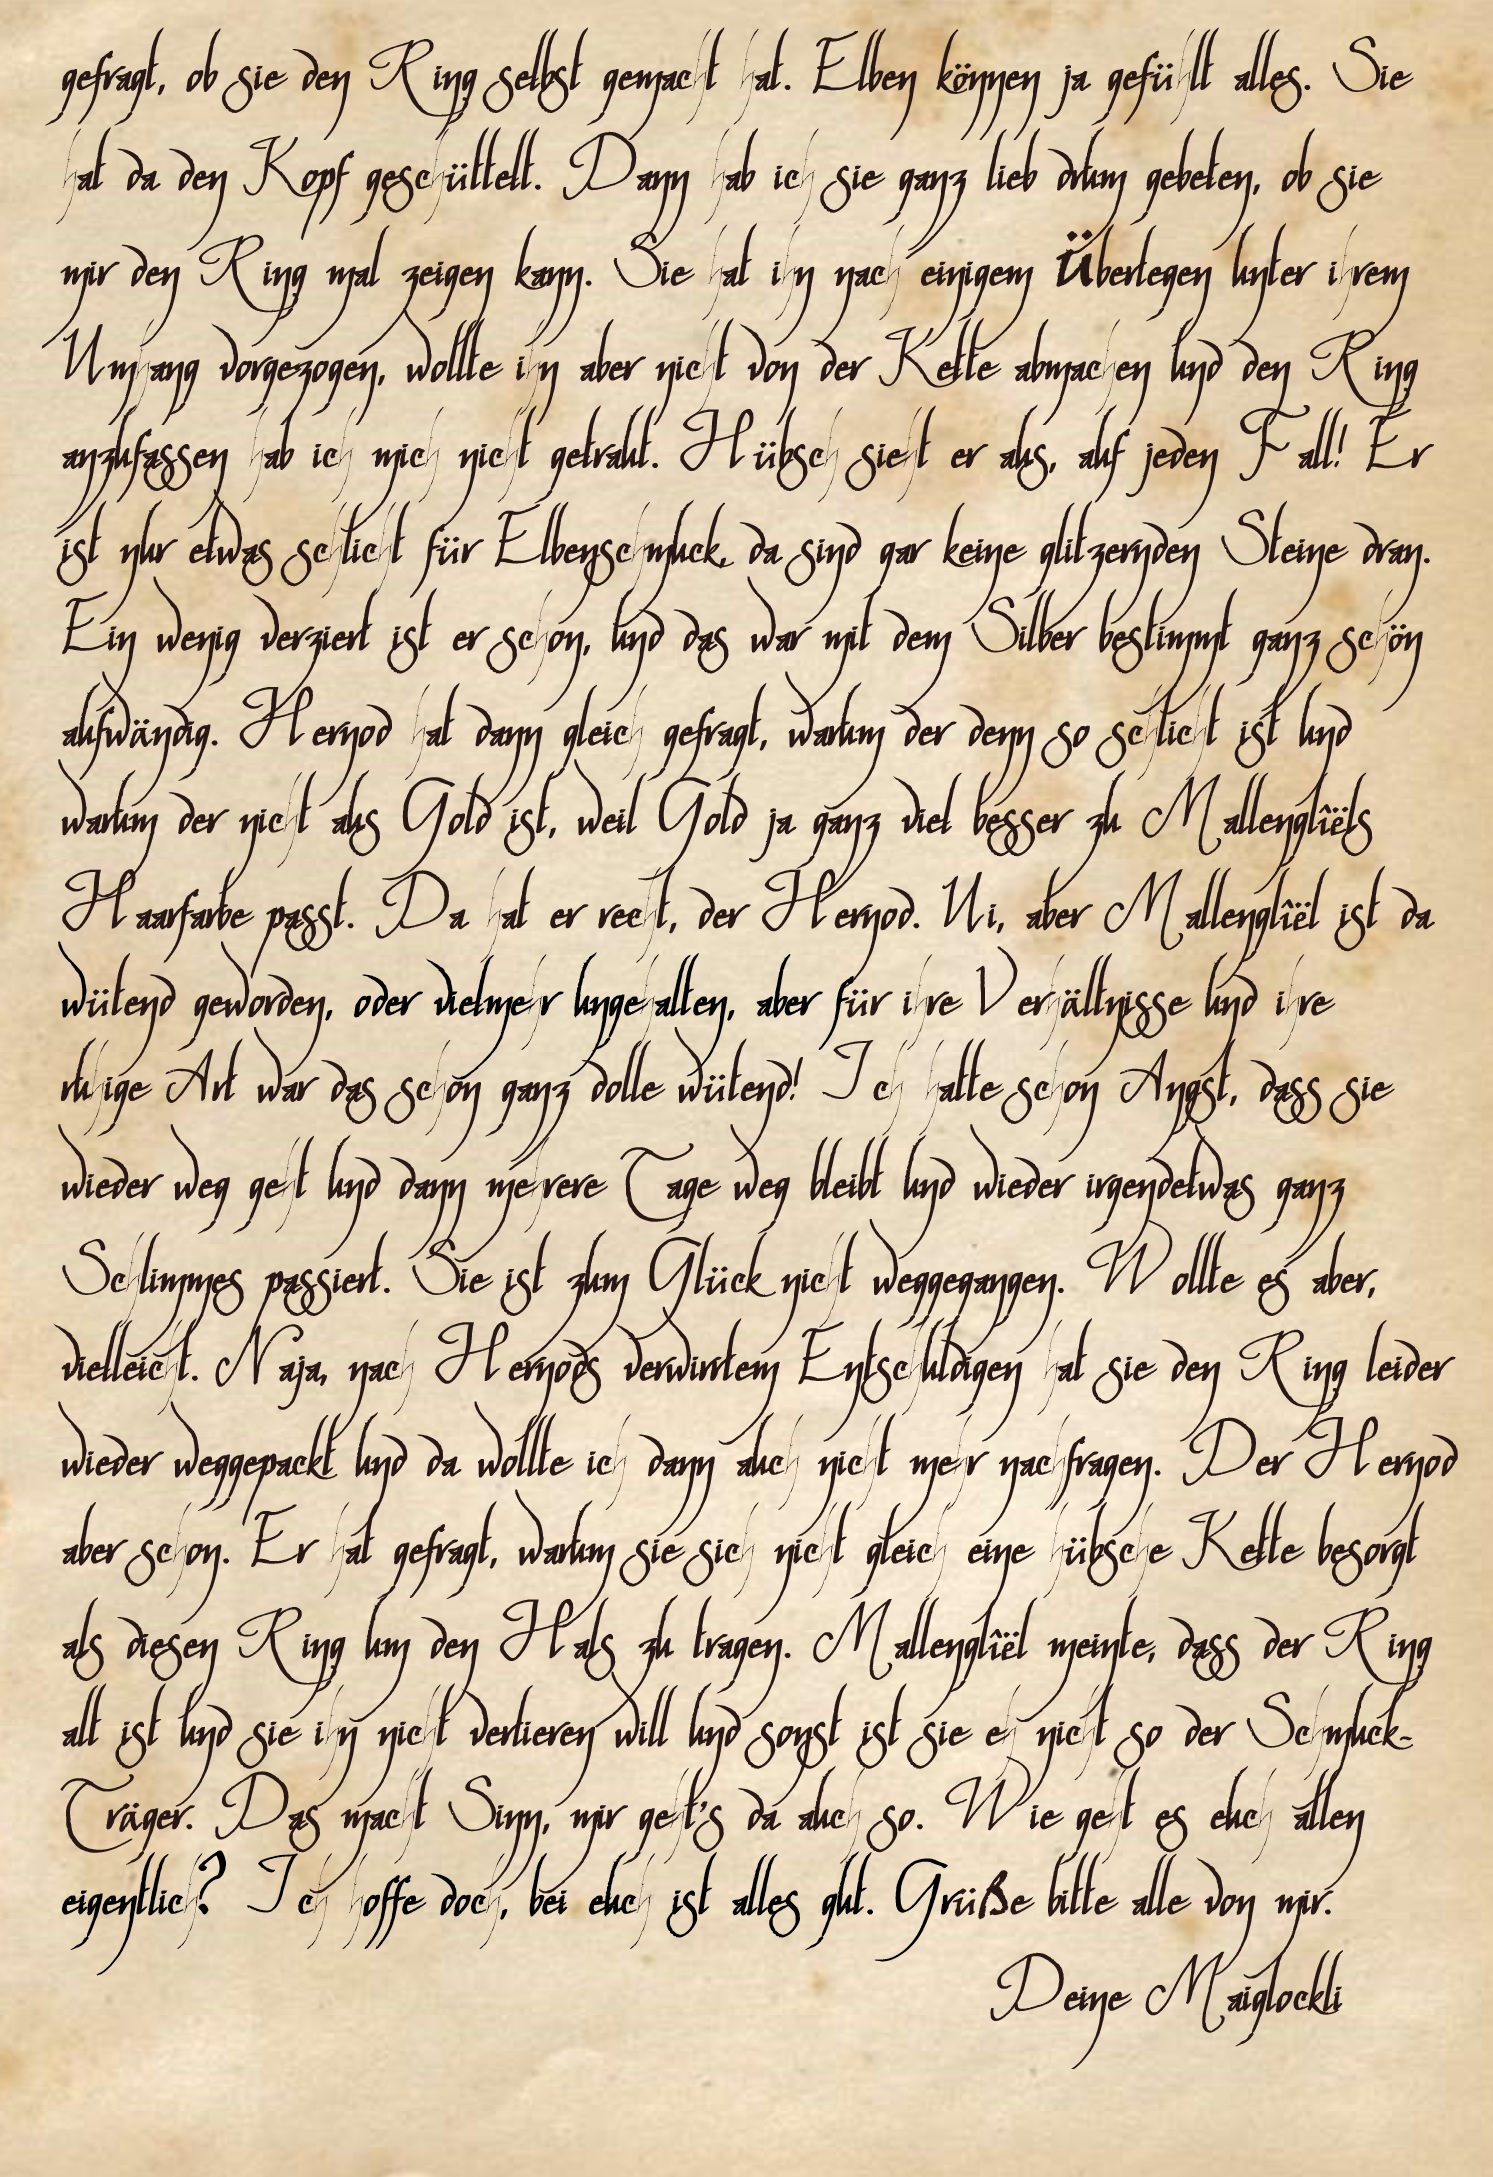 gefragt, ob sie den Ring selbst gemacht hat. Elben können ja gefühlt alles. Sie
hat da den Kopf geschüttelt. Dann hab ich sie ganz lieb drum gebeten, ob sie
mir den Ring mal zeigen kann. Sie hat ihn nach einigem Überlegen unter ihrem
Umhang vorgezogen, wollte ihn aber nicht von der Kette abmachen und den Ring
anzufassen hab ich mich nicht getraut. Hübsch sieht er aus, auf jeden Fall! Er
ist nur etwas schlicht für Elbenschmuck, da sind gar keine glitzernden Steine dran.
Ein wenig verziert ist er schon, und das war mit dem Silber bestimmt ganz schön
aufwändig. Hernod hat dann gleich gefragt, warum der denn so schlicht ist und
warum der nicht aus Gold ist, weil Gold ja ganz viel besser zu Mallenglîëls
Haarfarbe passt. Da hat er recht, der Hernod. Ui, aber Mallenglîël ist da
wütend geworden, oder vielmehr ungehalten, aber für ihre Verhältnisse und ihre
ruhige Art war das schon ganz dolle wütend! Ich hatte schon Angst, dass sie
wieder weg geht und dann mehrere Tage weg bleibt und wieder irgendetwas ganz
Schlimmes passiert. Sie ist zum Glück nicht weggegangen. Wollte es aber,
vielleicht. Naja, nach Hernods verwirrtem Entschuldigen hat sie den Ring leider
wieder weggepackt und da wollte ich dann auch nicht mehr nachfragen. Der Hernod
aber schon. Er hat gefragt, warum sie sich nicht gleich eine hübsche Kette besorgt
als diesen Ring um den Hals zu tragen. Mallenglîël meinte, dass der Ring
alt ist und sie ihn nicht verlieren will und sonst ist sie eh nicht so der Schmuck-
Träger. Das macht Sinn, mir geht's da auch so. Wie geht es euch allen
eigentlich? Ich hoffe doch, bei euch ist alles gut. Grüße bitte alle von mir.
Deine Maiglockli